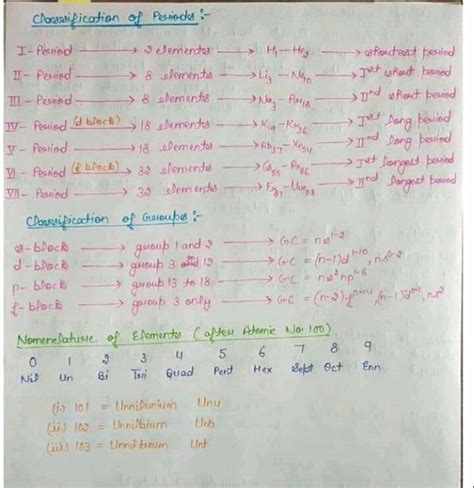 Classification of Periods :-
I - Period → 2 elements → H1 - He2 → shortest period
II - Period → 8 elements → Li3 - Ne10 → Ist short period
III - Period → 8 elements → Na3 - Ar18 → IInd short period
IV - Period (d block) → 18 elements → K19 - Kr36 → Ist long period
V - Period → 18 elements → Rb37 - Xe54 → IInd long period
VI - Period (f block) → 32 elements → Cs55 - Rn86 → Ist longest period
VII - Period → 32 elements → → IInd longest period
Classification of Groups :-
s - block → group 1 and 2 → G.C = ns1-2
d - block → group 3 12 → G.C = (n-1)d1-10, ns0-2
p - block → group 13 to 18 → G.C = ns2 np1-6
f - block → group 3 only → G.C = (n-2) f0-14, (n-1)d0-1, ns2
Nomenclature of Elements (after Atomic No. 100)
0 1 2 3 4 5 6 7 8 9
Nil Un Bi Tri Quad Pent Hex Sept Oct Enn
(i) 101 = Unnilunium Unu
(ii) 102 = Unnilbium Unb
(iii) 103 = Unniltrium Unt